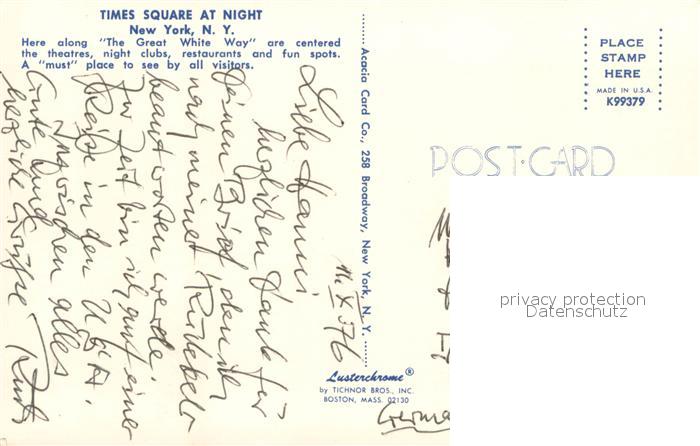 TIMES SQUARE AT NIGHT
New York, N. Y.
Here along "The Great White Way" are centered
the theatres, night clubs, restaurants and fun spots.
A "must" place to see by all visitors.
Acacia Card Co., 258 Broadway, New York, N. Y.
PLACE
STAMP
HERE
MADE IN U.S.A.
K99379
POST-CARD
Liebe Hanni
herzlichen Dank für
Deinen Brief den ich
nach meiner Rückkehr
beantworten werde.
Zur Zeit bin ich auf einer
Reise in den USA.
Inzwischen alles
Gute und
herzliche Grüße
Lusterchrome®
by TICHNOR BROS., INC.
BOSTON, MASS. 02130
privacy protection
Datenschutz